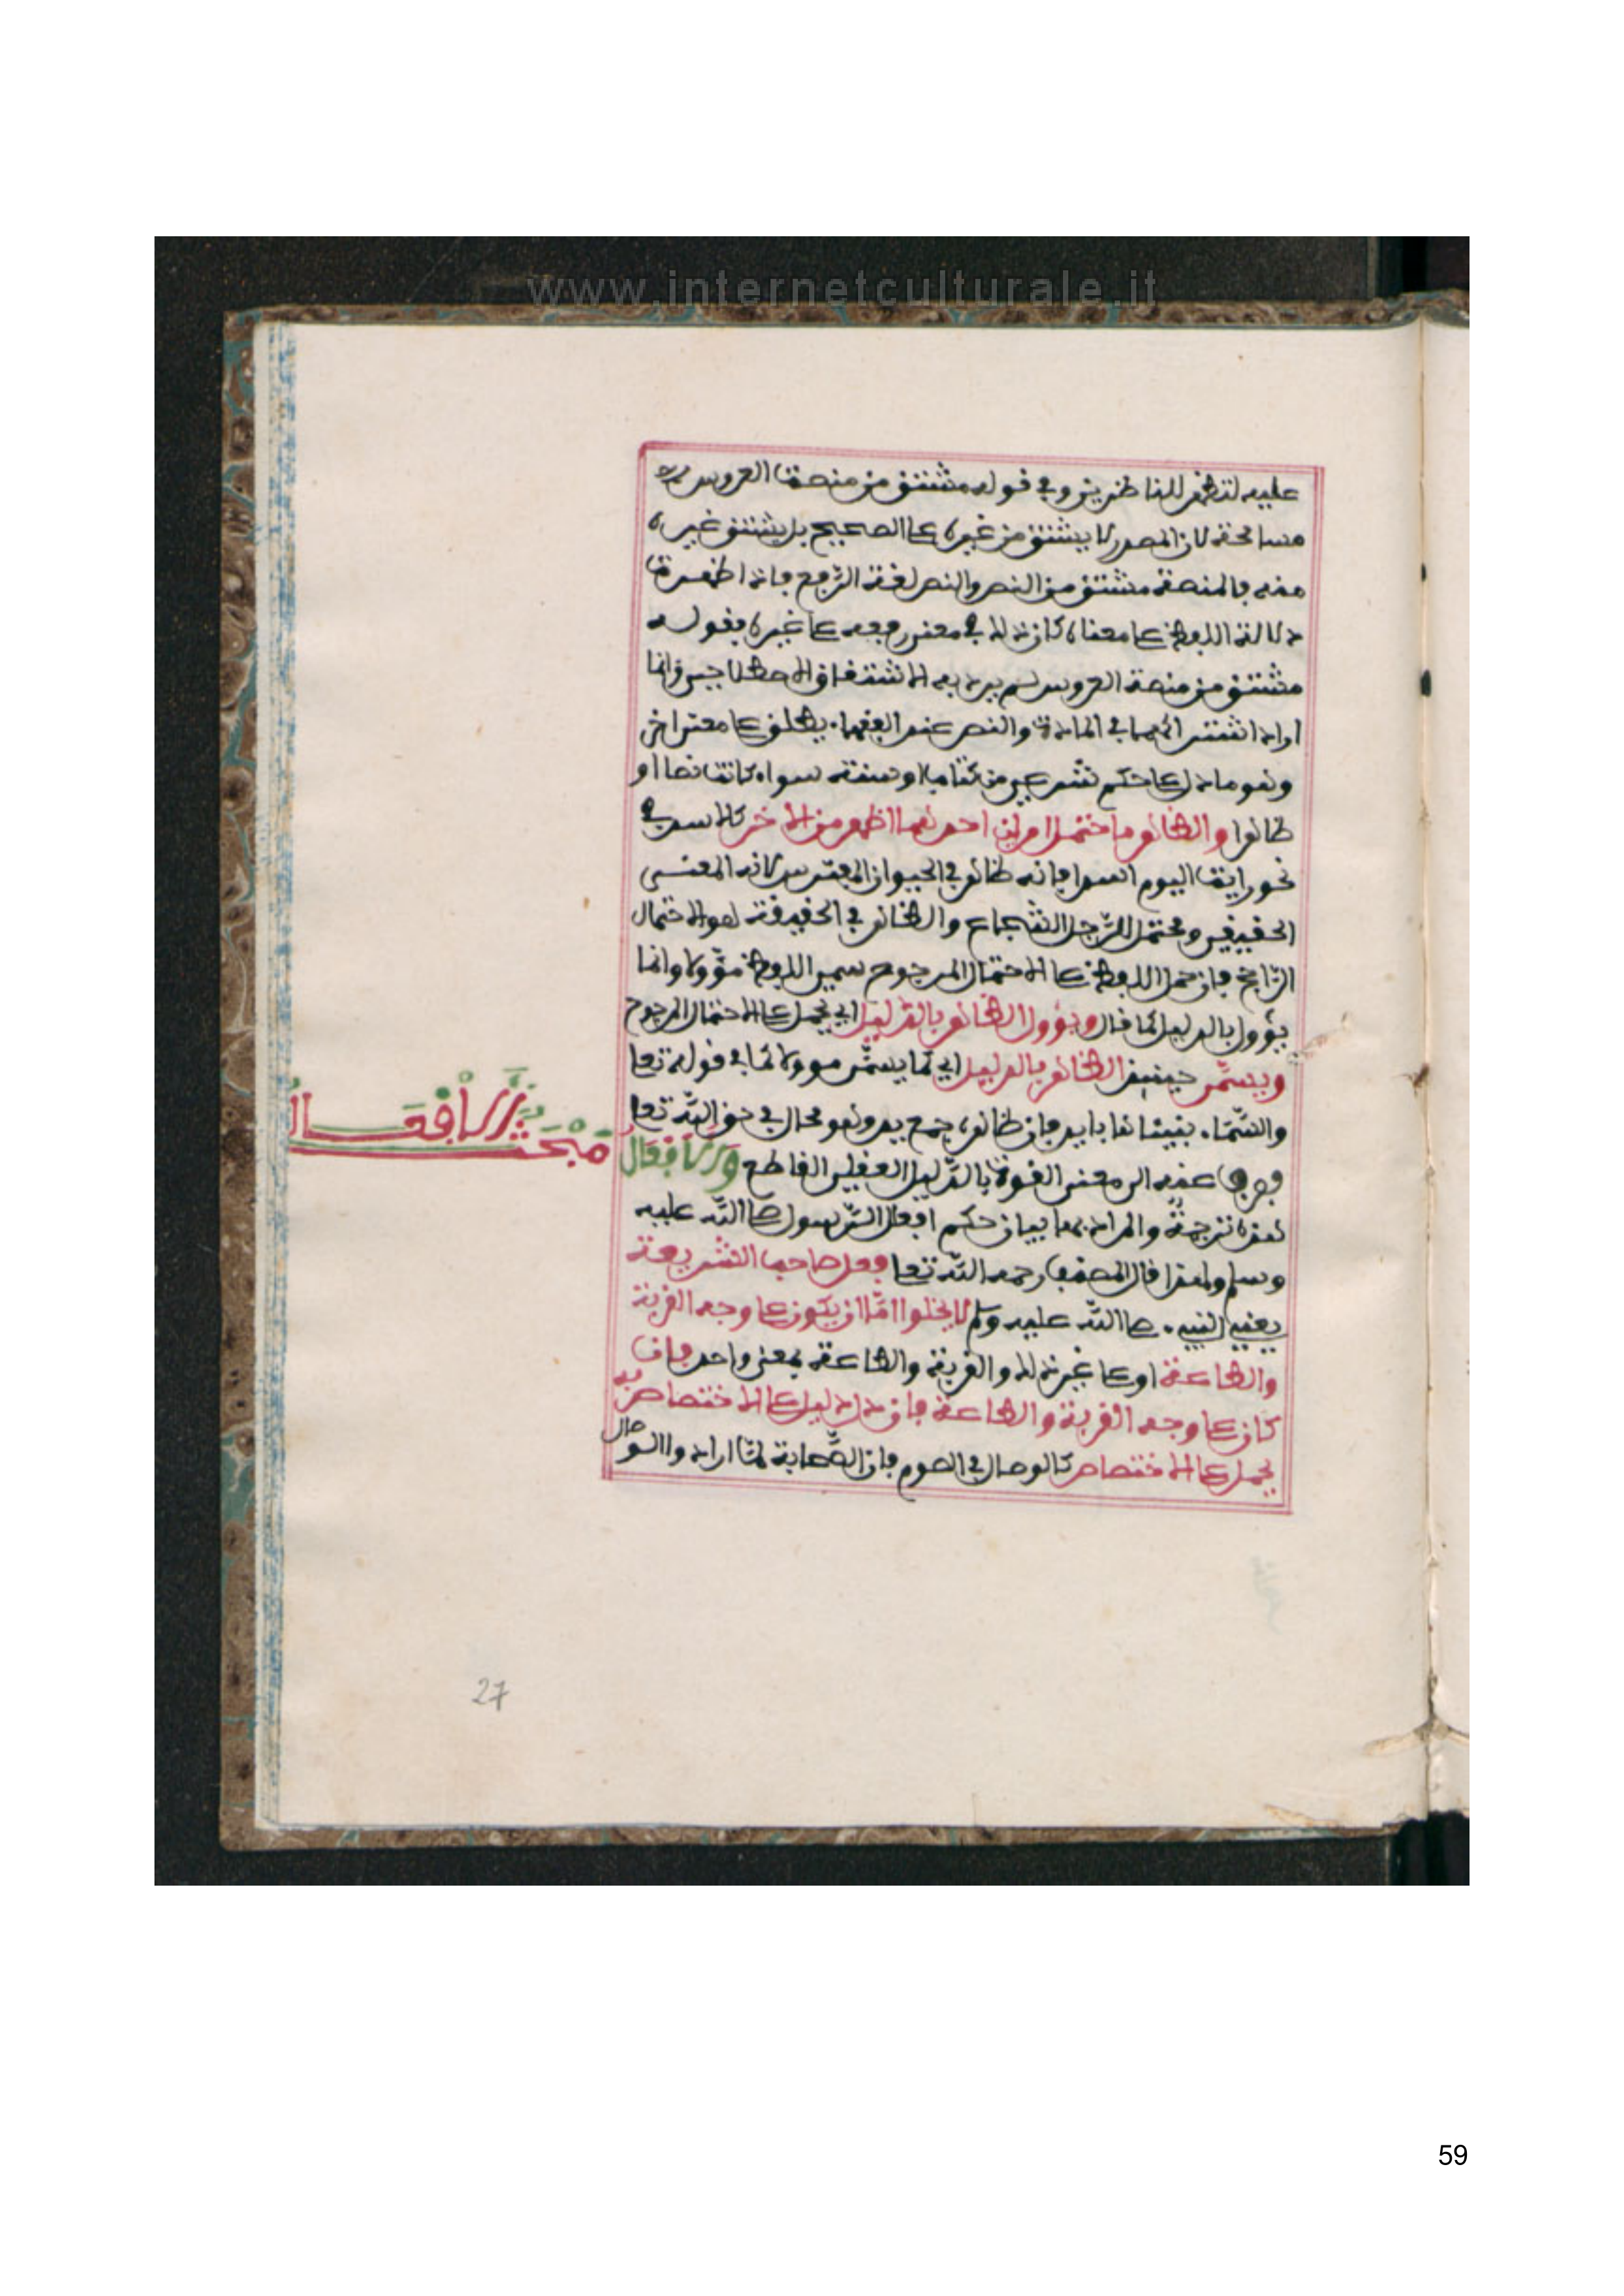 www.internetculturale.it
عليه لتظهر للناظرين وفي قوله مشتق من منصة العروس
مسامحة لان المصدر لا يشتق من غيره على الصحيح بل يشتق غيره
منه فالمنصة مشتق من النص والنص لغة الرّفع فاذا اظهرت
دلالة اللفظ على معناه كان ذلك في معنى رفعه على غيره فقوله
مشتق من منصة العروس لم يرد به الاشتقاق الاصطلاحي وانما
اراد اشتراكهما في المادة والنص عند الفقهاء يطلق على معنى اخر
وهو ما دل على حكم شرعي من كتاب او سنة سواء كانت نصا او
ظاهرا والظاهر ما احتمل امرين احدهما اظهر من الاخر كالاسد في
نحو رايت اليوم اسدا فانه ظاهر في الحيوان المفترس لانه المعنى
الحقيقي ومحتمل للرّجل الشجاع والظاهر في الحقيقة هو الاحتمال
الرّاجح فان حمل اللفظ على الاحتمال المرجوح سمي اللفظ مؤّولا وانما
يؤول بالدليل كما قال ويؤول الظاهر بالدّليل اي يحمل على الاحتمال المرجوح
ويسمّى حينئذ الظاهر بالدليل اي كما يسمّى موولا كما في قوله تعا
والسّماء بنيناها بايد فان ظاهره جمع يد وهو محال في حق اللّه تعا
فصرف عنه الى معنى القوة بالدّليل العقلي القاطع وَذِكْرُ الأفْعَالُ
هذه ترجمة والمراد بها بيان حكم افعال الرّسول صلى اللّه عليه
وسلم ولهذا قال المصنف رحمه اللّه تعا فعل صاحب الشريعة
يعني النبيء صلى اللّه عليه وسلم لا يخلوا امّا ان يكون على وجه القربة
والطاعة او على غير ذلك والقربة والطاعة بمعنى واحد فان
كان على وجه القربة والطاعة فان دل دليل على الاختصاص به
يحمل على الاختصاص كالوصال في الصوم فان الصّحابة لمّا ارادوا الوصال
27
59